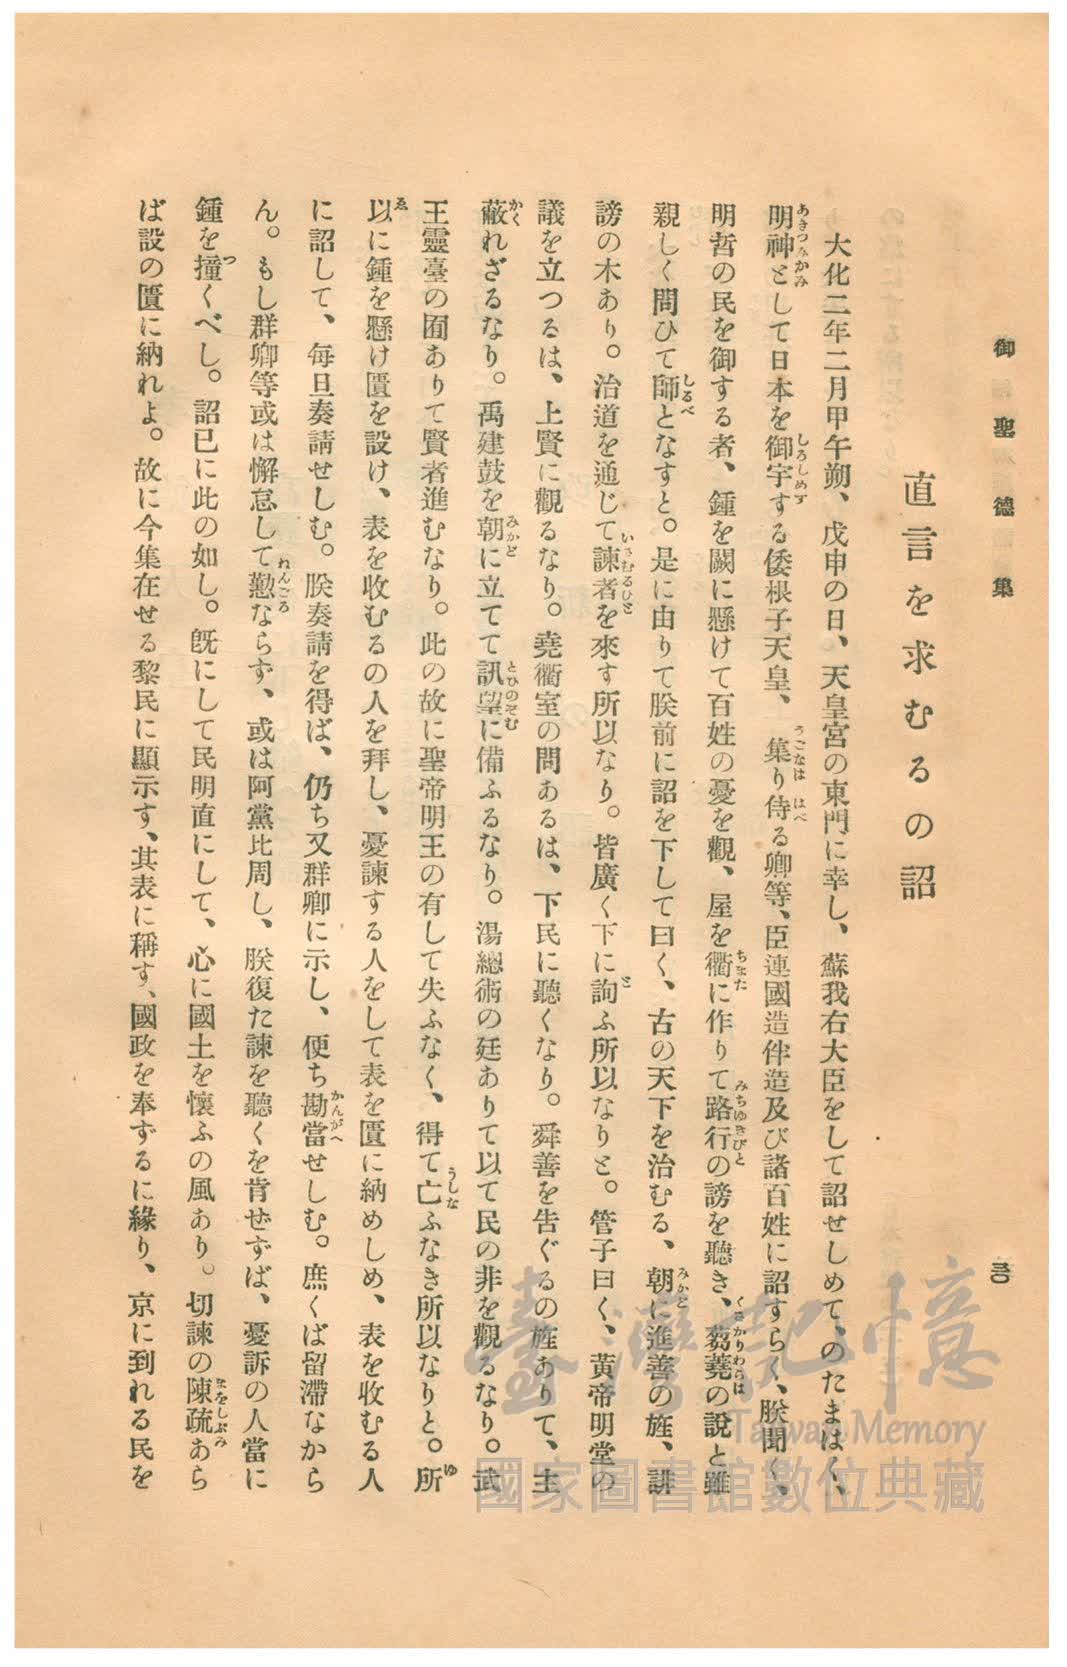 御聖德集
直言を求むるの詔
大化二年二月甲午朔、戊申の日、天皇宮の東門に幸し、蘇我右大臣をして詔せしめて、のたまはく、
明神として日本を御宇する倭根子天皇、集り侍る卿等、臣連國造伴造及び諸百姓に詔すらく、朕聞く、
あきつみかみ しろしめす うごなは はべ
明哲の民を御する者、鍾を闕に懸けて百姓の憂を觀、屋を衢に作りて路行の謗を聽き、蒭蕘の說と雖
ちまた みちゆきびと くさかりわらは
親しく問ひて師となすと。是に由りて朕前に詔を下して曰く、古の天下を治むる、朝に進善の旌、誹
しるべ みかど
謗の木あり。治道を通じて諫者を來す所以なり。皆廣く下に詢ふ所以なりと。管子曰く、黃帝明堂の
いさむるひと と
議を立つるは、上賢に觀るなり。堯衢室の問あるは、下民に聽くなり。舜善を告ぐるの旌ありて、主
蔽れざるなり。禹建鼓を朝に立てて訊望に備ふるなり。湯總術の廷ありて以て民の非を觀るなり。武
かく みかど とひのぞむ
王靈臺の囿ありて賢者進むなり。此の故に聖帝明王の有して失ふなく、得て亡ふなき所以なりと。所
うしな ゆ
以に鍾を懸け匱を設け、表を收むるの人を拜し、憂諫する人をして表を匱に納めしめ、表を收むる人
ゑ
に詔して、每旦奏請せしむ。朕奏請を得ば、仍ち又群卿に示し、便ち勘當せしむ。庶くば留滯なから
かんがへ
ん。もし群卿等或は懈怠して懃ならず、或は阿黨比周し、朕復た諫を聽くを肯ぜずば、憂訴の人當に
ねんごろ
鍾を撞くべし。詔已に此の如し。旣にして民明直にして、心に國土を懷ふの風あり。切諫の陳疏あら
つ
ば設の匱に納れよ。故に今集在せる黎民に顯示す、其表に稱す、國政を奉ずるに緣り、京に到れる民を
臺灣記憶
Taiwan Memory
國家圖書館數位典藏